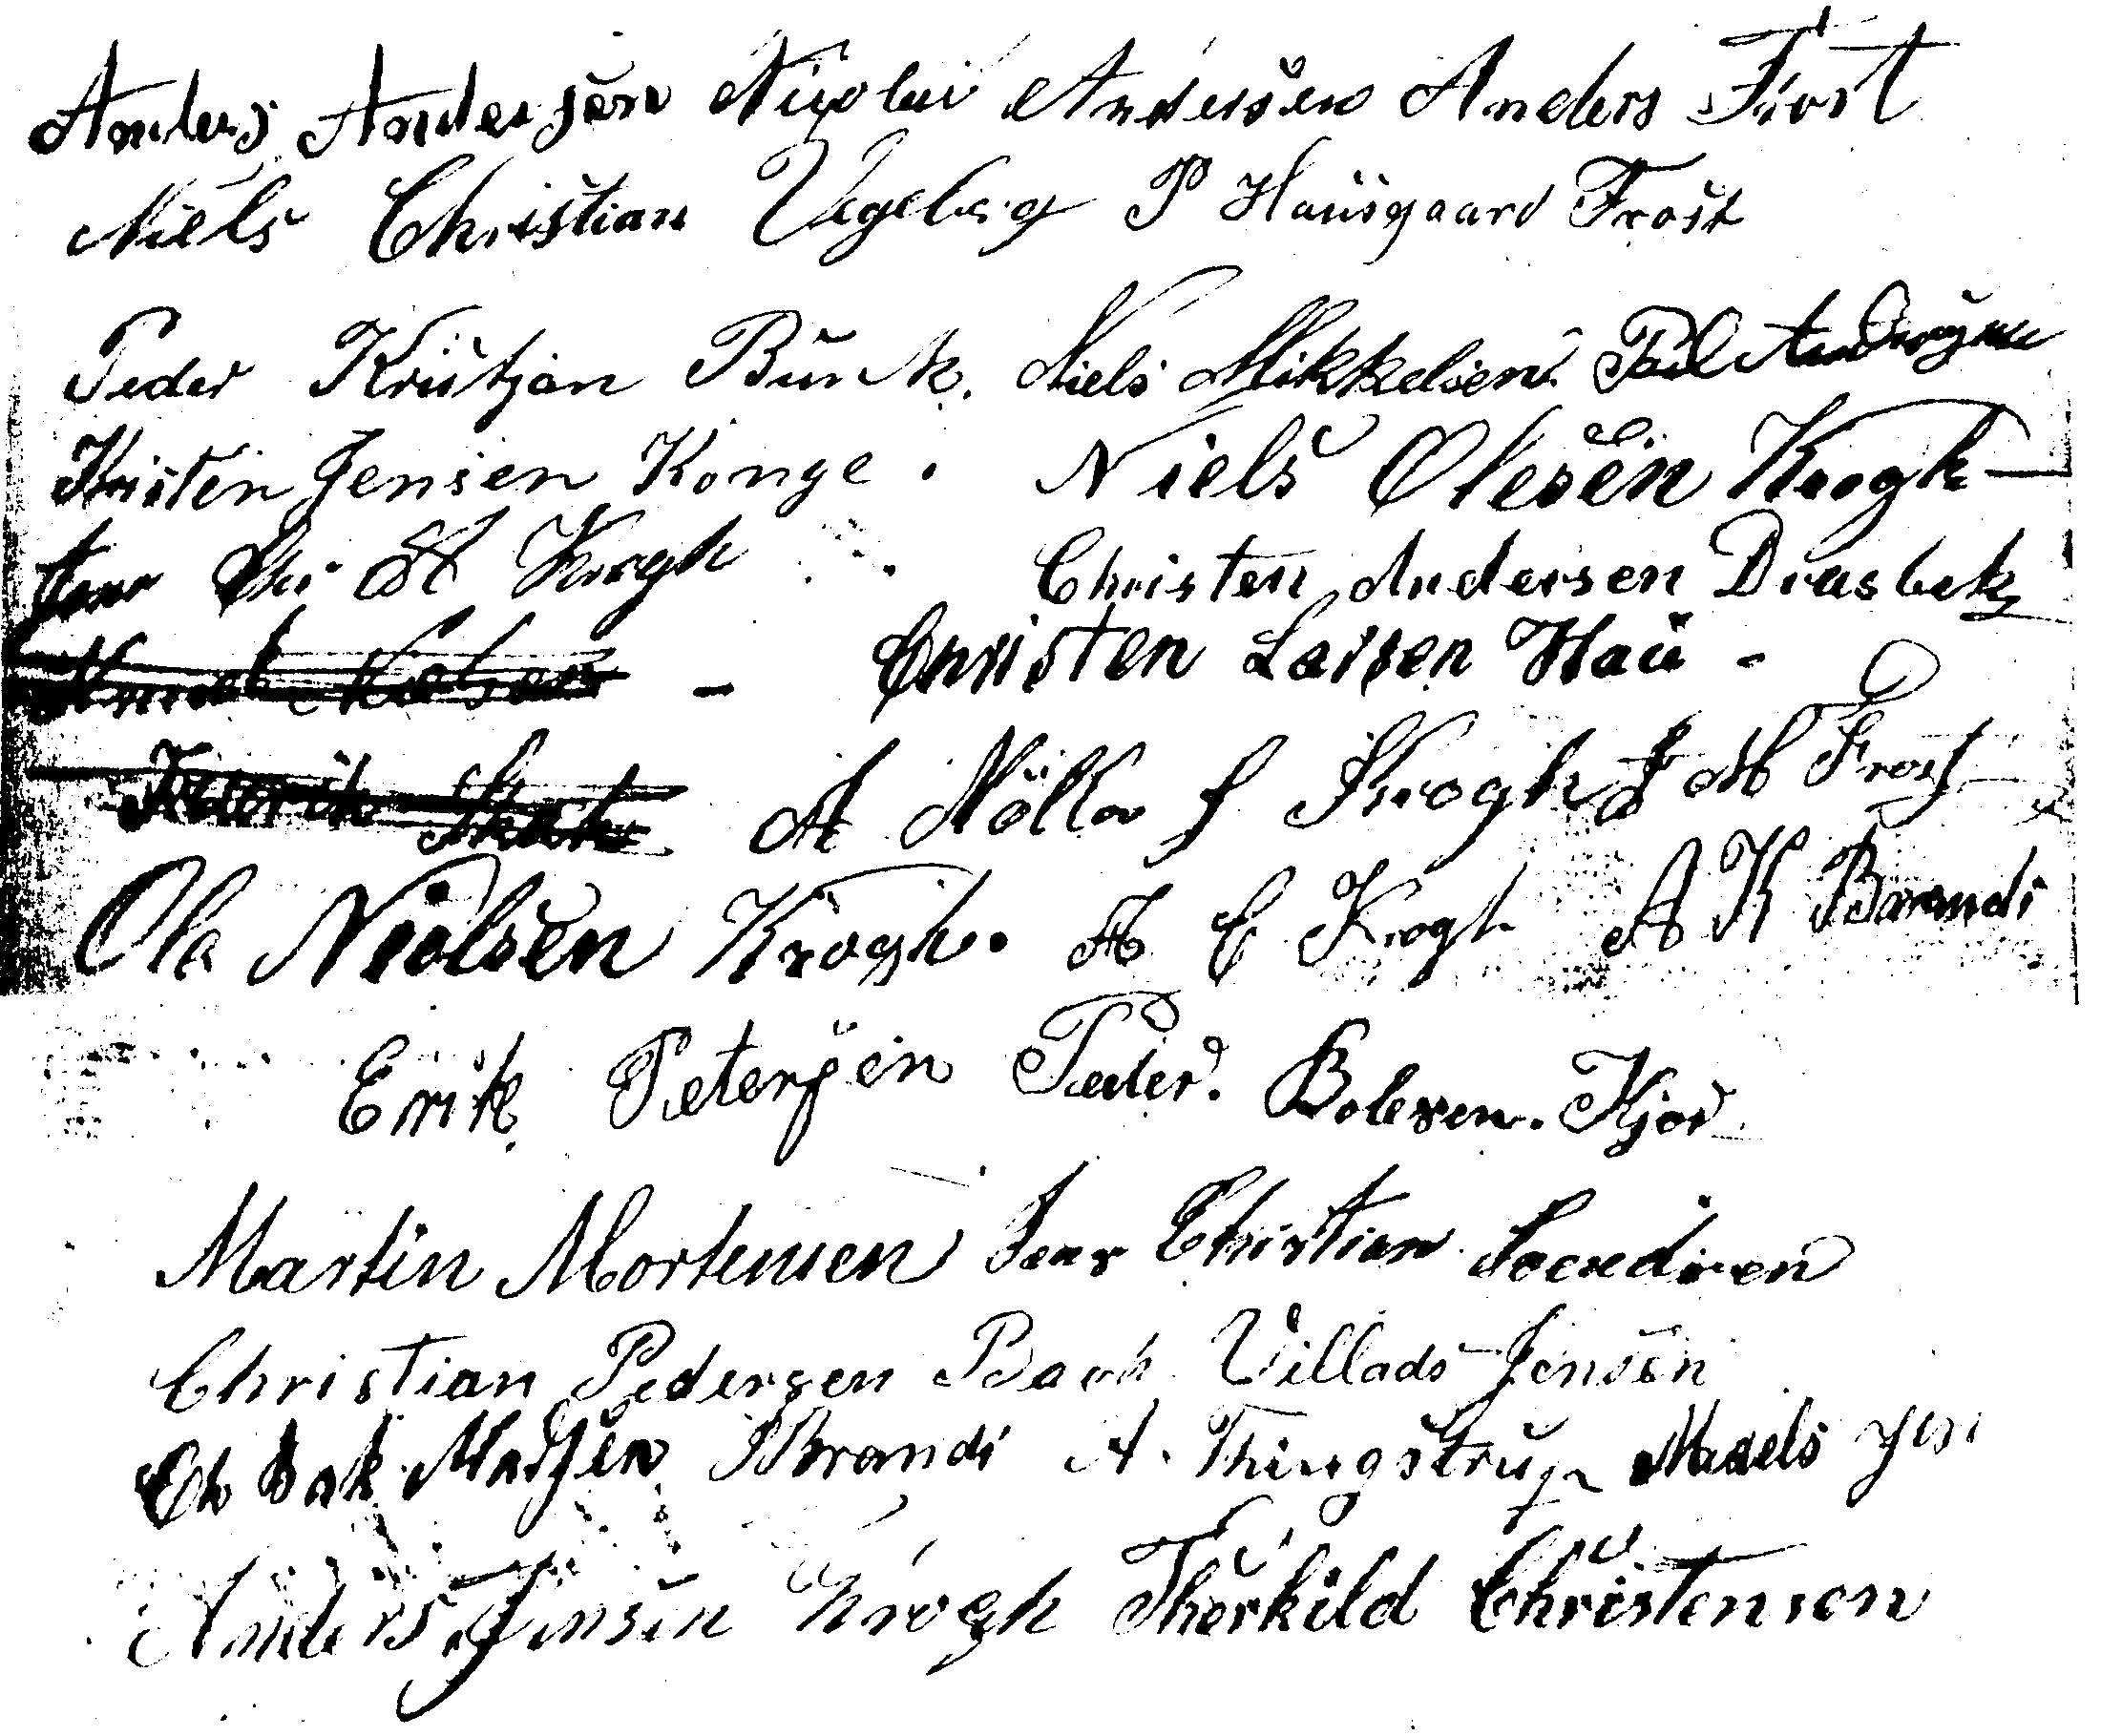 Anders Andersen Nicolai Andersen Anders Frost
Niels Christian Vegeberg P Hausgaard Frost
Peder Kristjan Bunk. Niels Mikkelsen.
Kristen Jensen Konge. Niels Olesen Krogh
Krogh Christen Andersen Drasbek
Christen Larsen Hau -
A Möller J Krogh J M Frost
Ole Nielsen Krogh. A C Krogh A K Brandi
Erik Petersen Peder. Bolesen. Kjær
Martin Mortensen Jens Christian
Christian Pedersen Bach Villads Jensen
Bak Madsen Brandi A. Thingstrup
Anders Jensen Krogh Therkild Christensen